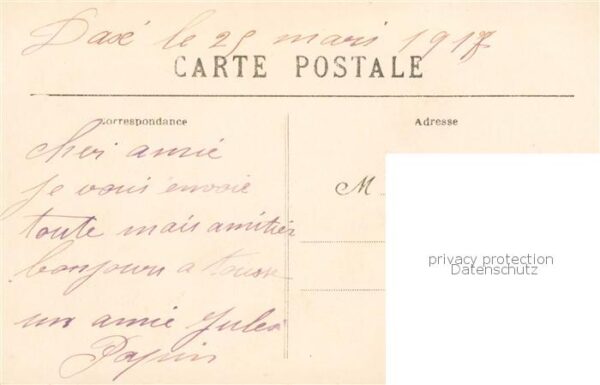 Daxé le 25 mars 1917
CARTE POSTALE
Correspondance
Adresse
cher amie
M
je vous envoie
toute mais amitier
bonjours a tousse
un amie Jules
Papin
privacy protection
Datenschutz